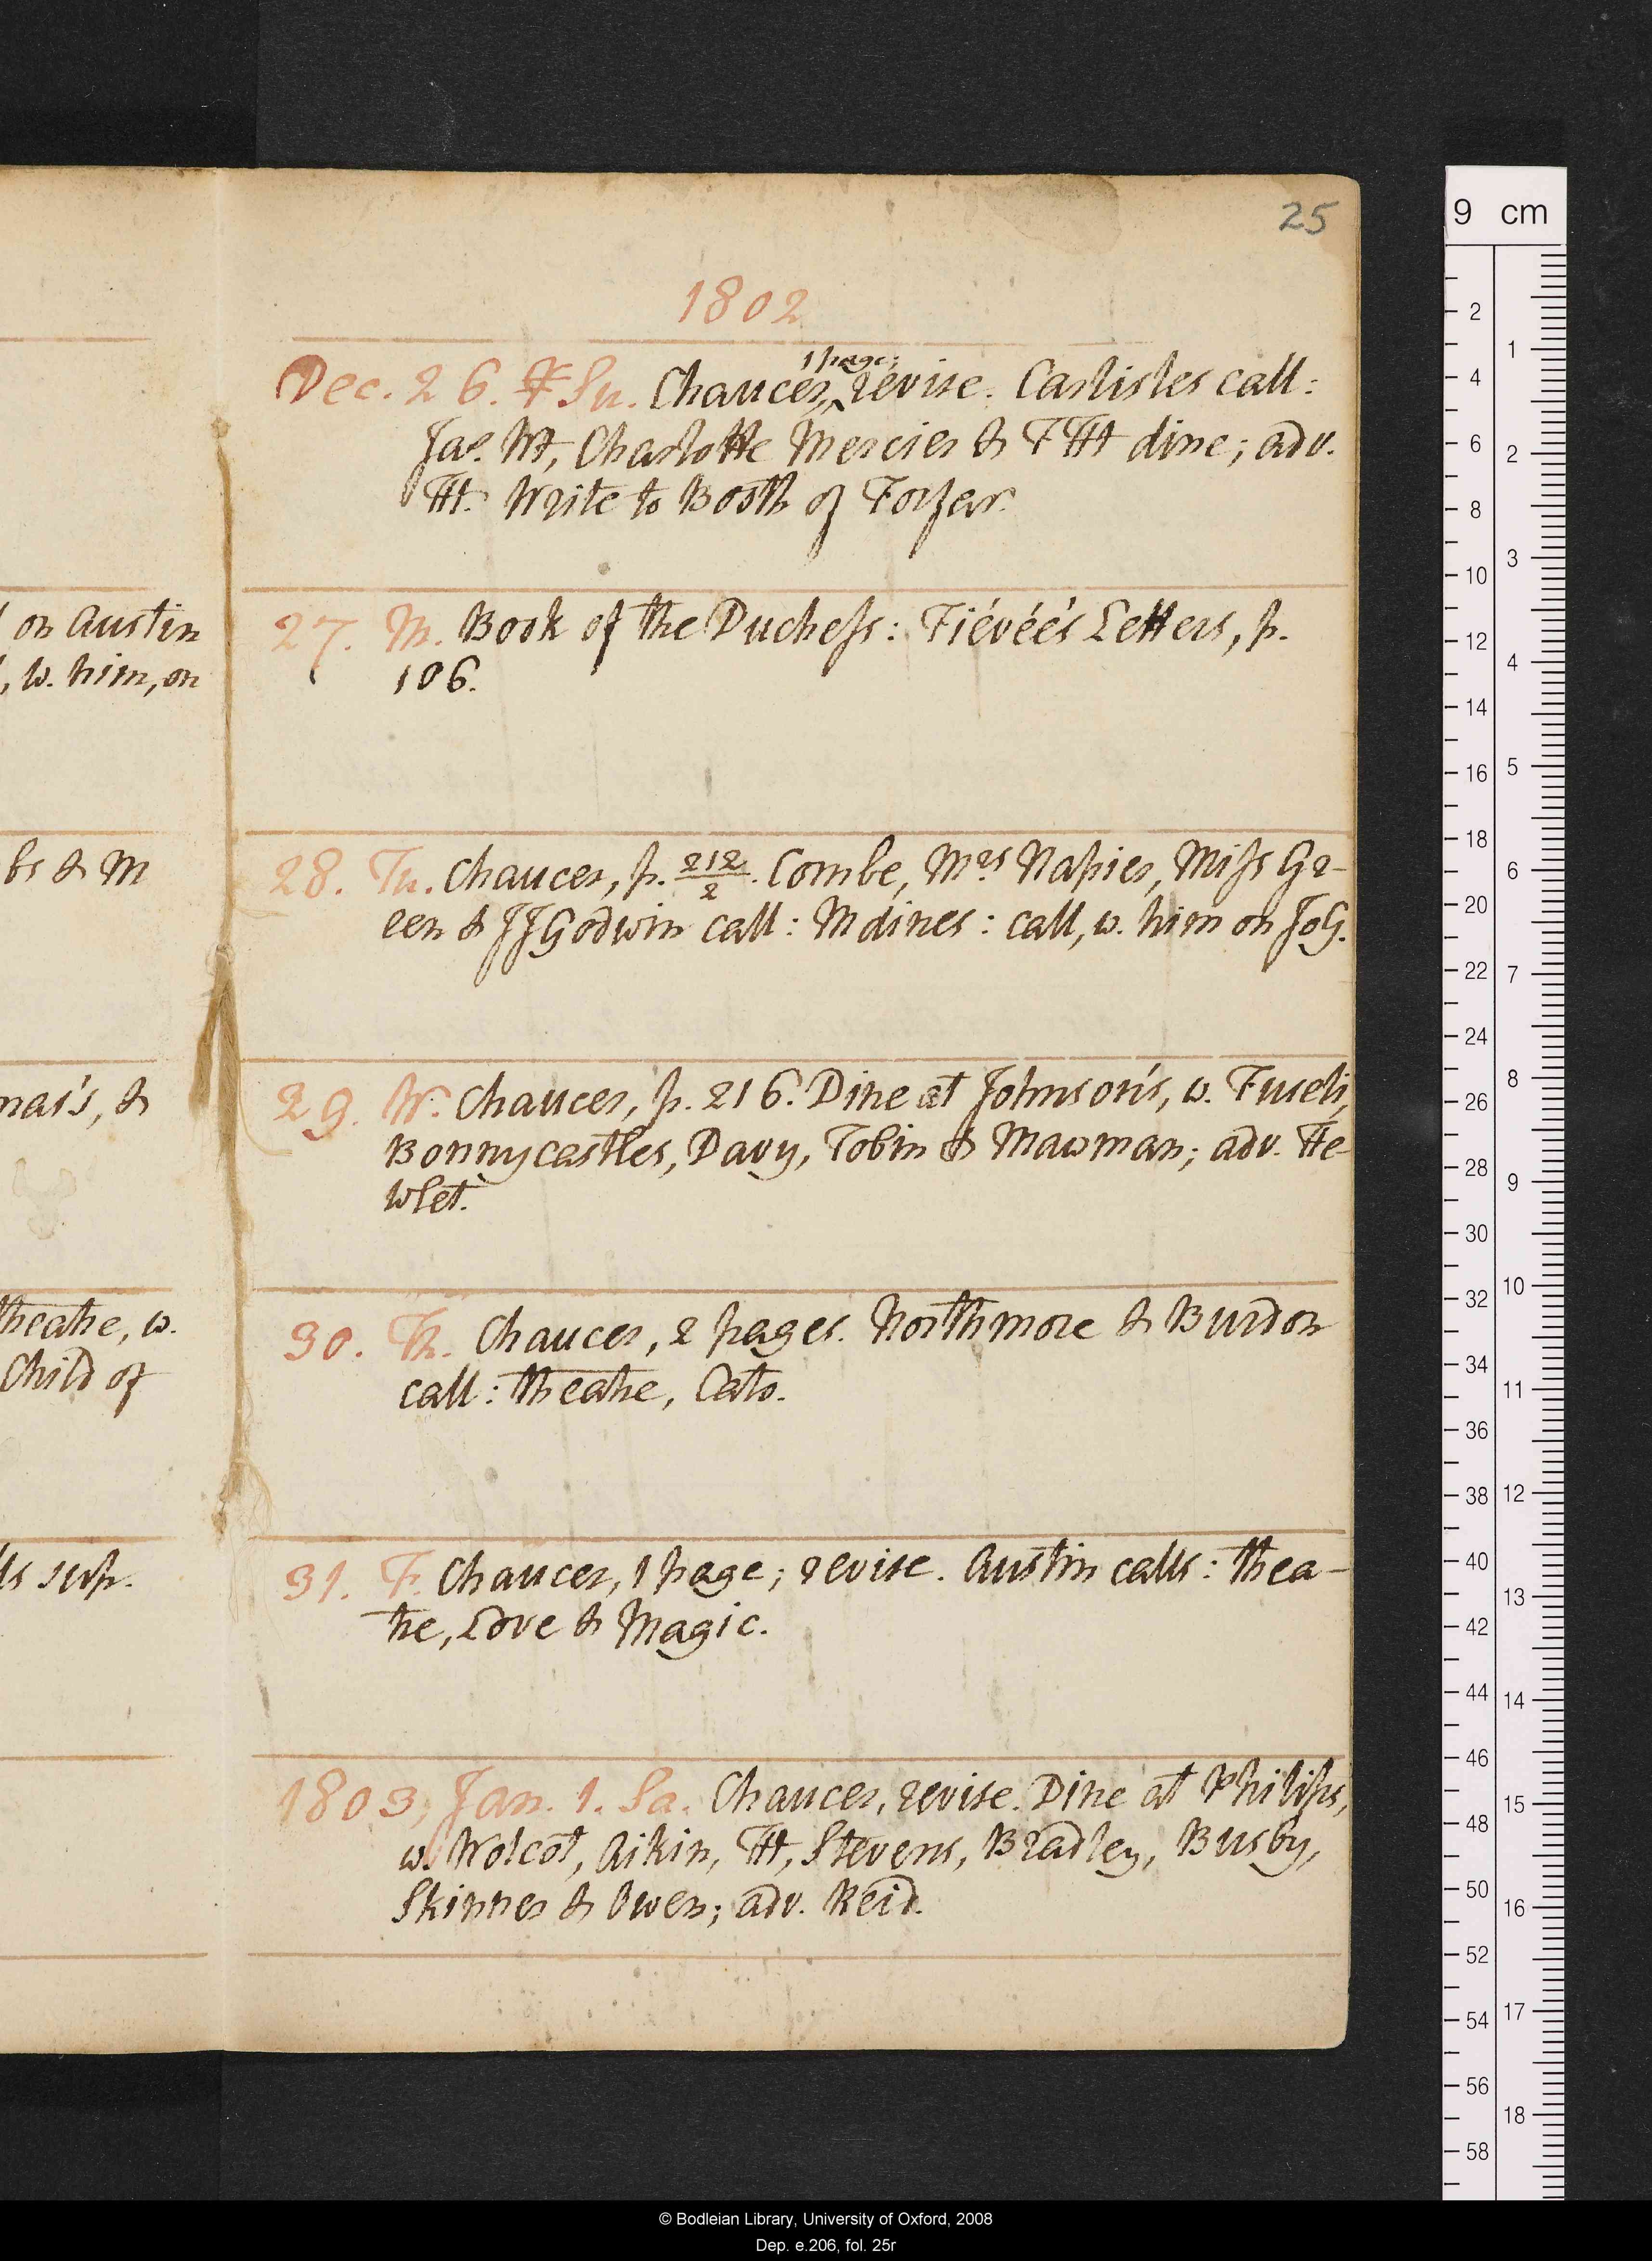 25
1802
Dec. 26. F Su. Chaucer, 1 page; revise. Carlisles call:
Jas. Mt, Charlotte Mercier & F Ht dine; adv.
Ht. Write to Booth of Forfar.
27. M. Book of the Duchess: Fiévée's Letters, p.
106.
28. Tu. Chaucer, p. 212/2. Combe, Mrs Napier, Miss Gr-
een & JJGodwin call: M dines: call, w. him on JoG.
29. W. Chaucer, p. 216. Dine at Johnson's, w. Fuseli,
Bonnycastles, Davy, Tobin & Mawman; adv. He-
wlet.
30. Th. Chaucer, 2 pages. Northmore & Burdon
call: theatre, Cato.
31. F. Chaucer, 1 page; revise. Austin calls: thea-
tre, Love & Magic.
1803, Jan. 1. Sa. Chaucer, revise. Dine at Philips,
w. Wolcot, Aikin, Ht, Stevens, Bradley, Busby,
Skinner & Owen; adv. Reid.
on Austin
, w. him, on
bs & M
mas's, &
theatre, w.
Child of
ls sup.
9 cm
2
4
6
8
10
12
14
16
18
20
22
24
26
28
30
32
34
36
38
40
42
44
46
48
50
52
54
56
58
1
2
3
4
5
6
7
8
9
10
11
12
13
14
15
16
17
18
© Bodleian Library, University of Oxford, 2008
Dep. e.206, fol. 25r